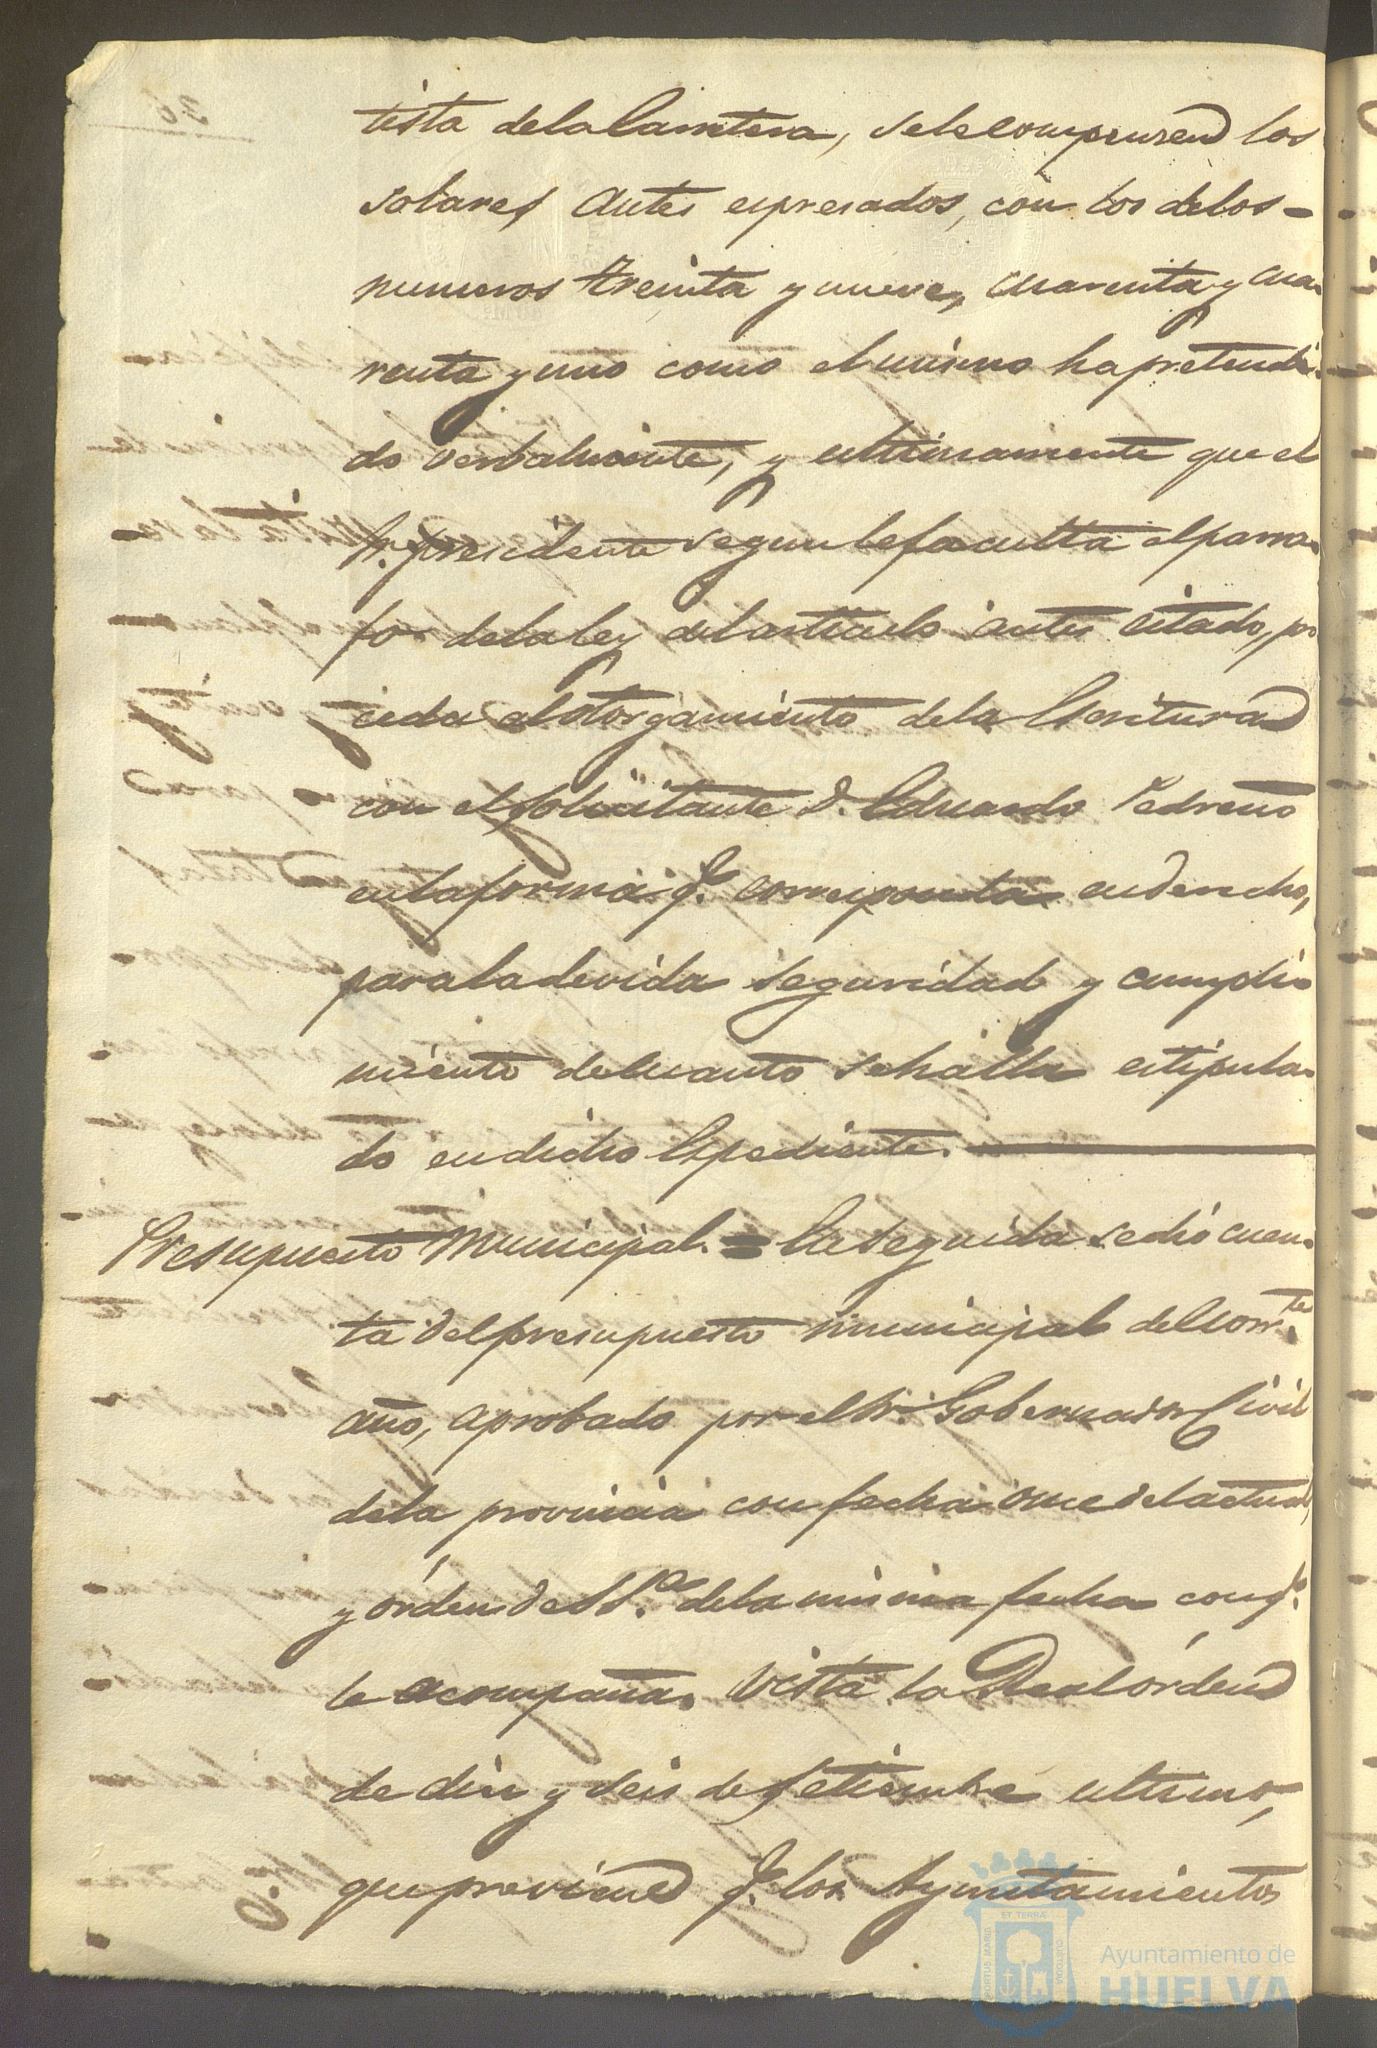 tista de la Carretera, se le compensen los
solares antes espresados, con los de los
numeros treinta y nueve, cuarenta y cua-
renta y uno como el mismo ha pretendi-
do verbalmente, y ultimamente que el
Sr. presidente segun le faculta el parra-
fo de la ley del articulo antes citado, pro
ceda al otorgamiento de la Escritura
con el solicitante D. Eduardo Pedreño
en la forma q.e corresponda en derecho,
para la devida seguridad y cumpli-
miento de cuanto se halla estipula-
do en dicho Espediente.
Presupuesto Municipal. = En seguida se dió cuen-
ta del presupuesto municipal del corr.te
año, aprobado por el Sr. Gobernador Civil
de la provincia con fecha once del actual,
y órden de S.S.a de la misma fecha con q.e
le acompaña. Vista la Real órden
de diez y seis de Setiembre ultimo,
que previene q.e los Ayuntamientos
Ayuntamiento de
HUELVA